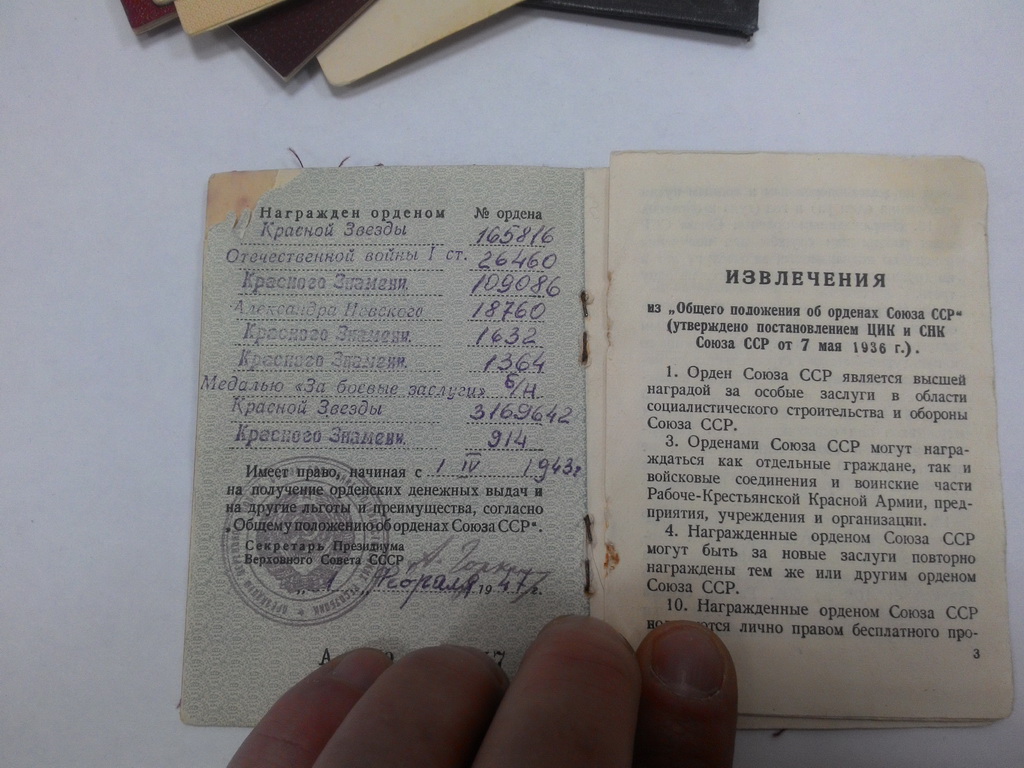 Награжден орденом № ордена
Красной Звезды 165816
Отечественной войны I ст. 26460
Красного Знамени. 109086
Александра Невского 18760
Красного Знамени. 1632
Красного Знамени. 1364
Медалью «За боевые заслуги» б/н
Красной Звезды 3169642
Красного Знамени. 914
Имеет право, начиная с 1 IV 1943г
на получение орденских денежных выдач и
на другие льготы и преимущества, согласно
„Общему положению об орденах Союза ССР“.
Секретарь Президиума
Верховного Совета СССР
„1“ февраля 1947 г.
А
ИЗВЛЕЧЕНИЯ
из „Общего положения об орденах Союза ССР“
(утверждено постановлением ЦИК и СНК
Союза ССР от 7 мая 1936 г.).
1. Орден Союза ССР является высшей
наградой за особые заслуги в области
социалистического строительства и обороны
Союза ССР.
3. Орденами Союза ССР могут награ-
ждаться как отдельные граждане, так и
войсковые соединения и воинские части
Рабоче-Крестьянской Красной Армии, пред-
приятия, учреждения и организации.
4. Награжденные орденом Союза ССР
могут быть за новые заслуги повторно
награждены тем же или другим орденом
Союза ССР.
10. Награжденные орденом Союза ССР
лично правом бесплатного про-
3